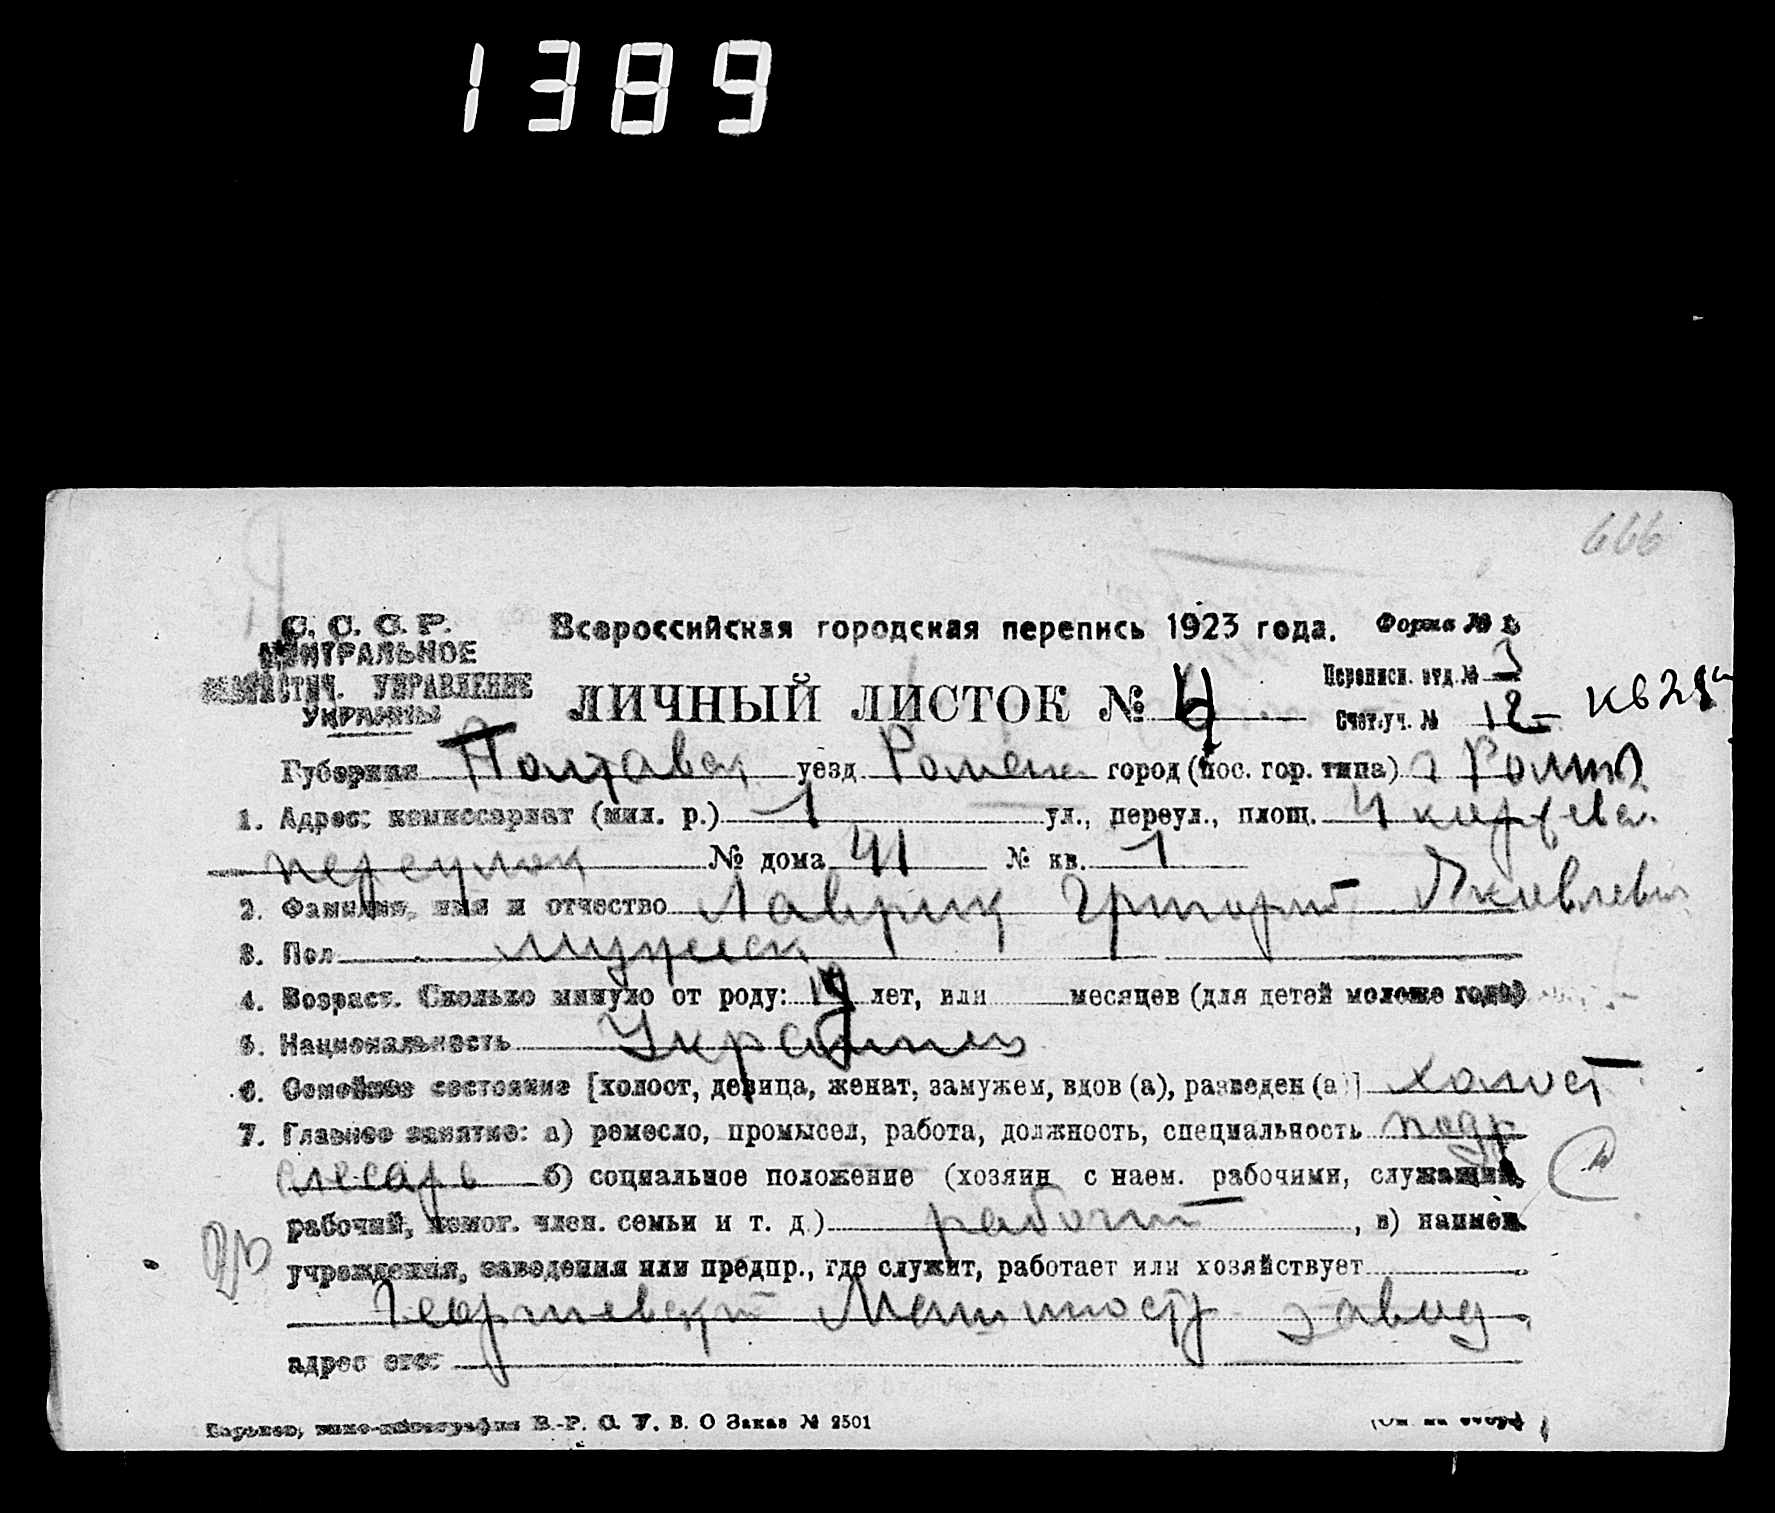 1389
666
С. С. С. Р. Всероссийская городская перепись 1923 года. Форма №
ЦЕНТРАЛЬНОЕ
СТАТИСТИЧ. УПРАВЛЕНИЕ ЛИЧНЫЙ ЛИСТОК № 4 Переписн. отд. № 3
УКРАИНЫ Счет.уч. № 12 кв
Губерния Полтавск уезд Роменс город (пос. гор. типа) г Ромны
1. Адрес: комиссариат (мил. р.) 1 ул., переул., площ. 4
переулок № дома 41 № кв. 1
2. Фамилия, имя и отчество Лаврик Григорий Яковлевич
3. Пол мужеск
4. Возраст. Сколько минуло от роду: 19 лет, или месяцев (для детей моложе года)
5. Национальность Украинец
6. Семейное состояние [холост, девица, женат, замужем, вдов (а), разведен (а)] холост
7. Главное занятие: а) ремесло, промысел, работа, должность, специальность подр
слесарь б) социальное положение (хозяин с наем. рабочими, служащий,
рабочий, помог. член. семьи и т. д.) рабочий, в) наимен.
учреждения, заведения или предпр., где служит, работает или хозяйствует
Георгиевский Машиностр завод
адрес его:
Харьков, В.-Р. С. У. В. О Заказ № 2501